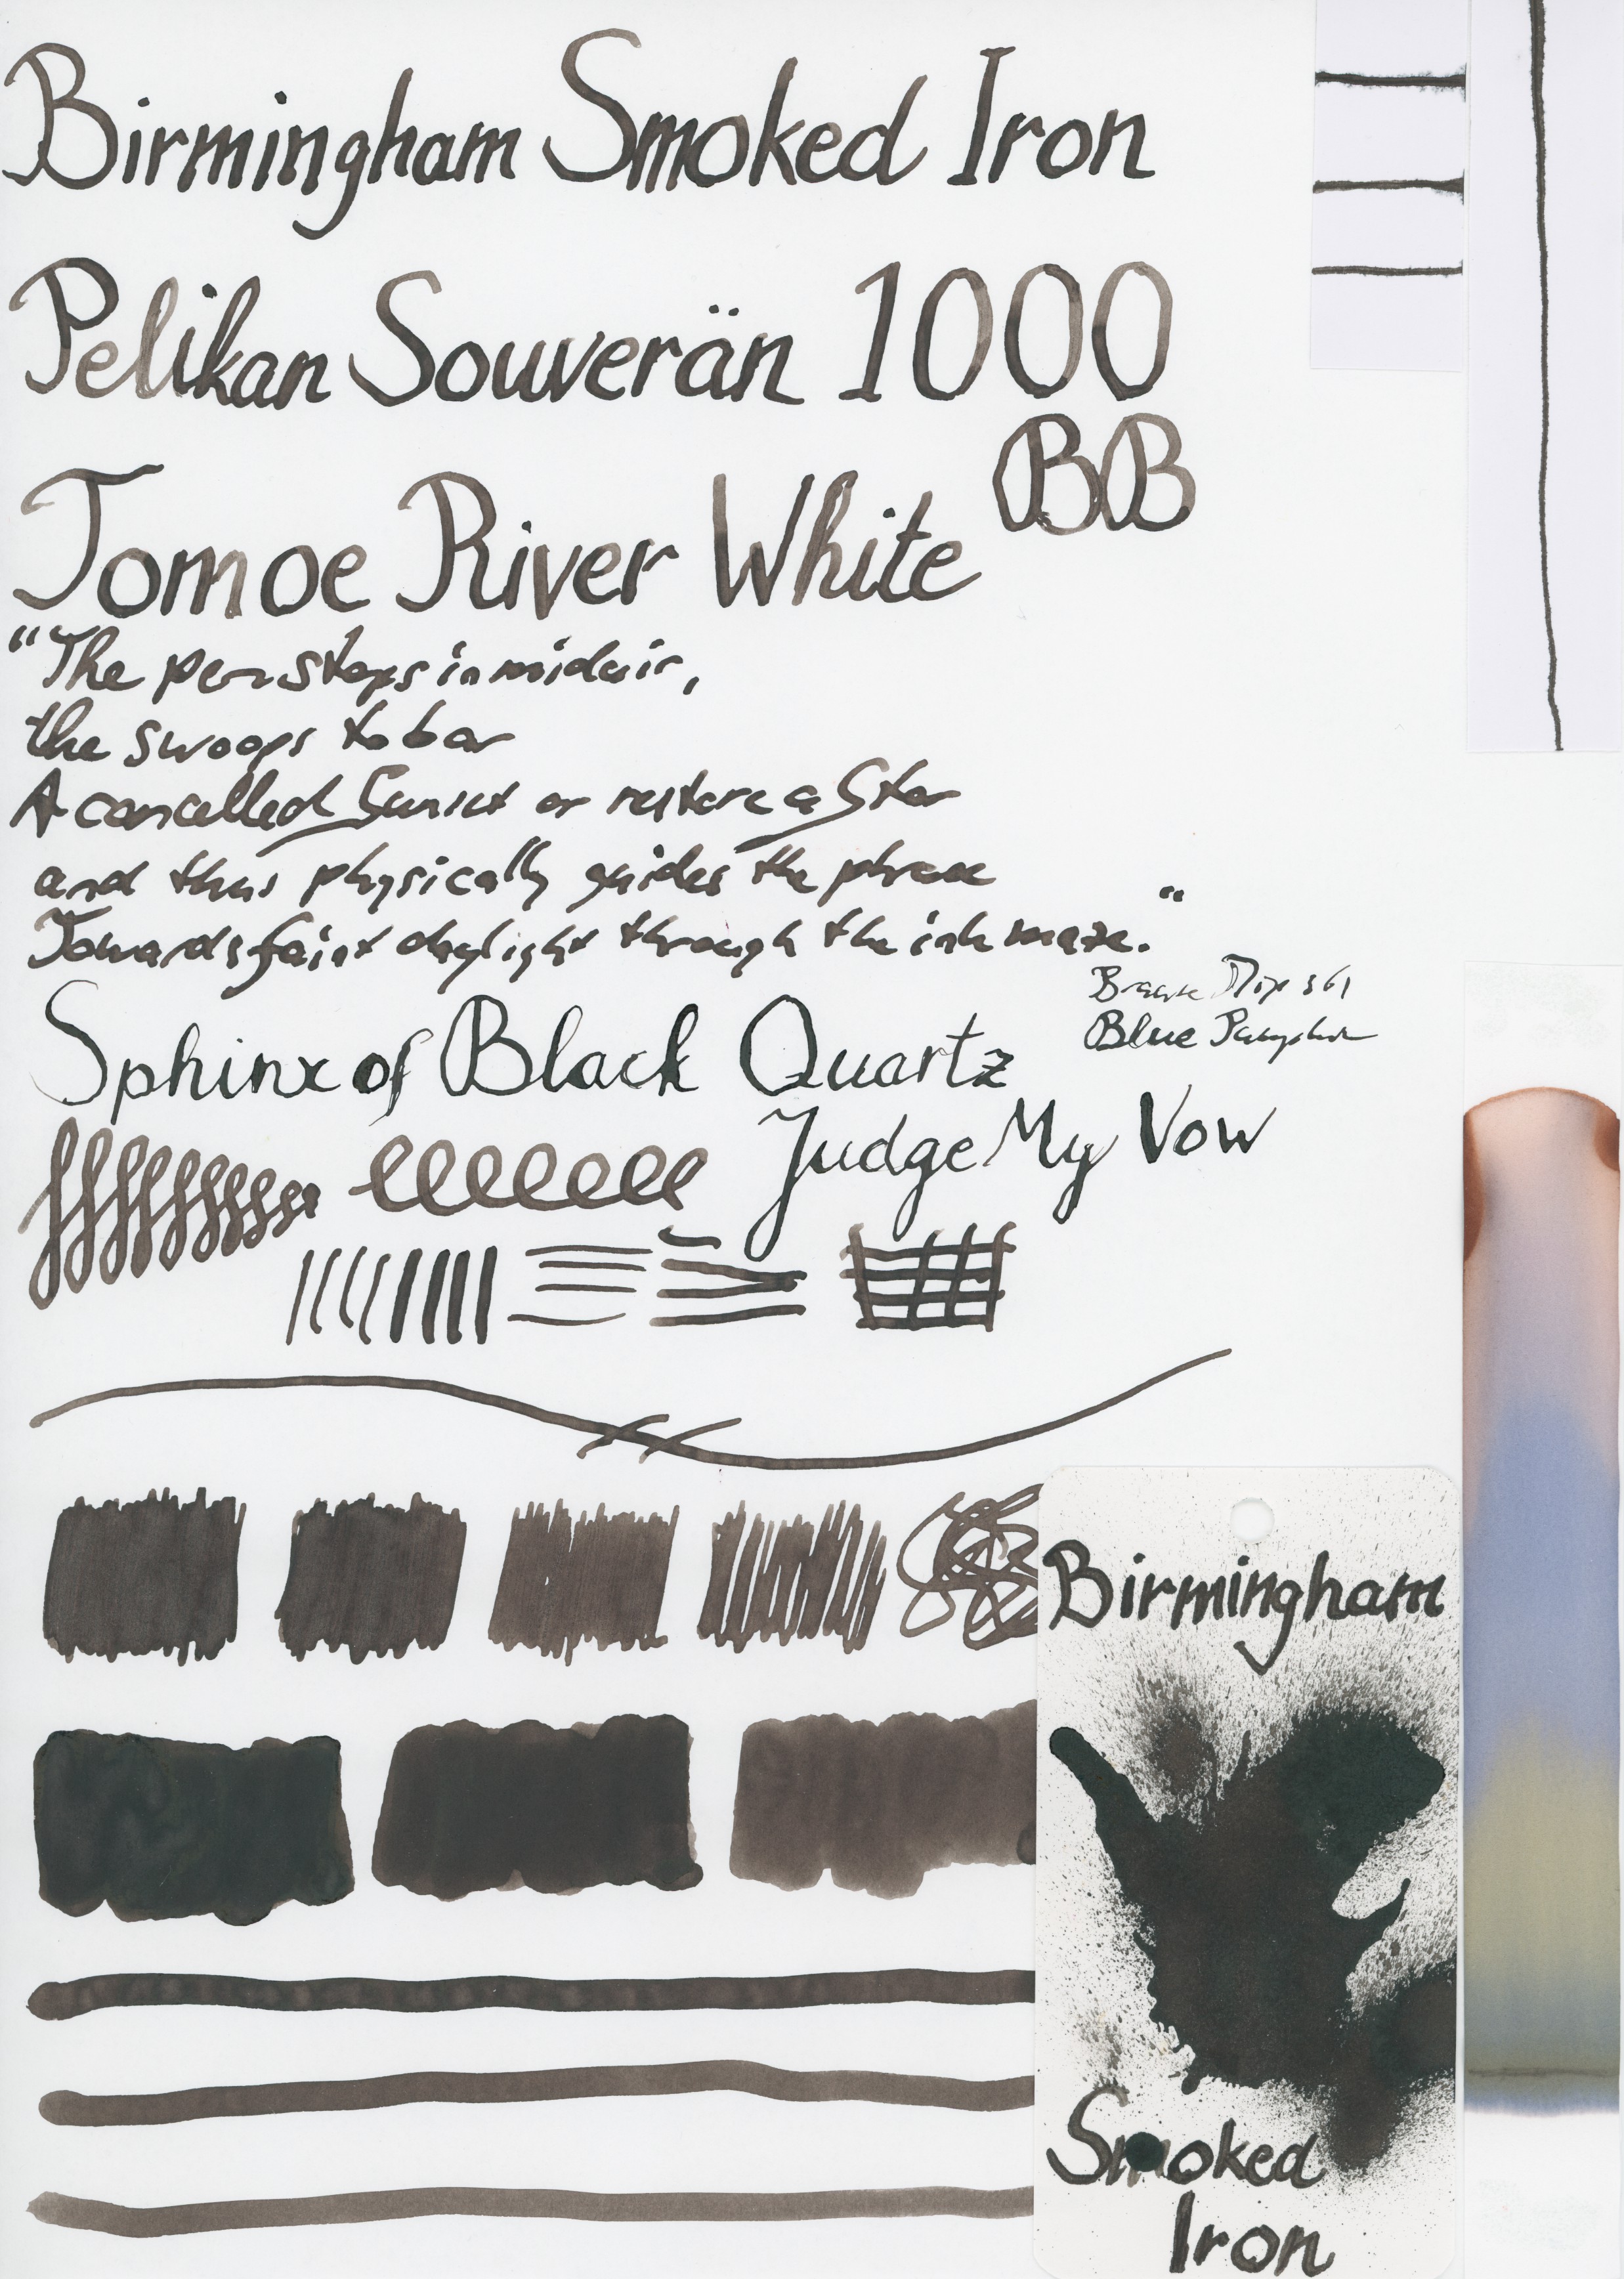 Birmingham Smoked Iron
Pelikan Souverän 1000
BB
Tomoe River White
"The pen stops in midair,
the swoops to bar
A cancelled Sunset or restore a Star
and thus physically guides the phrase
Towards faint daylight through the ink maze."
Brause 361
Blue Pumpkin
Sphinx of Black Quartz
Judge My Vow
Birmingham
Smoked
Iron